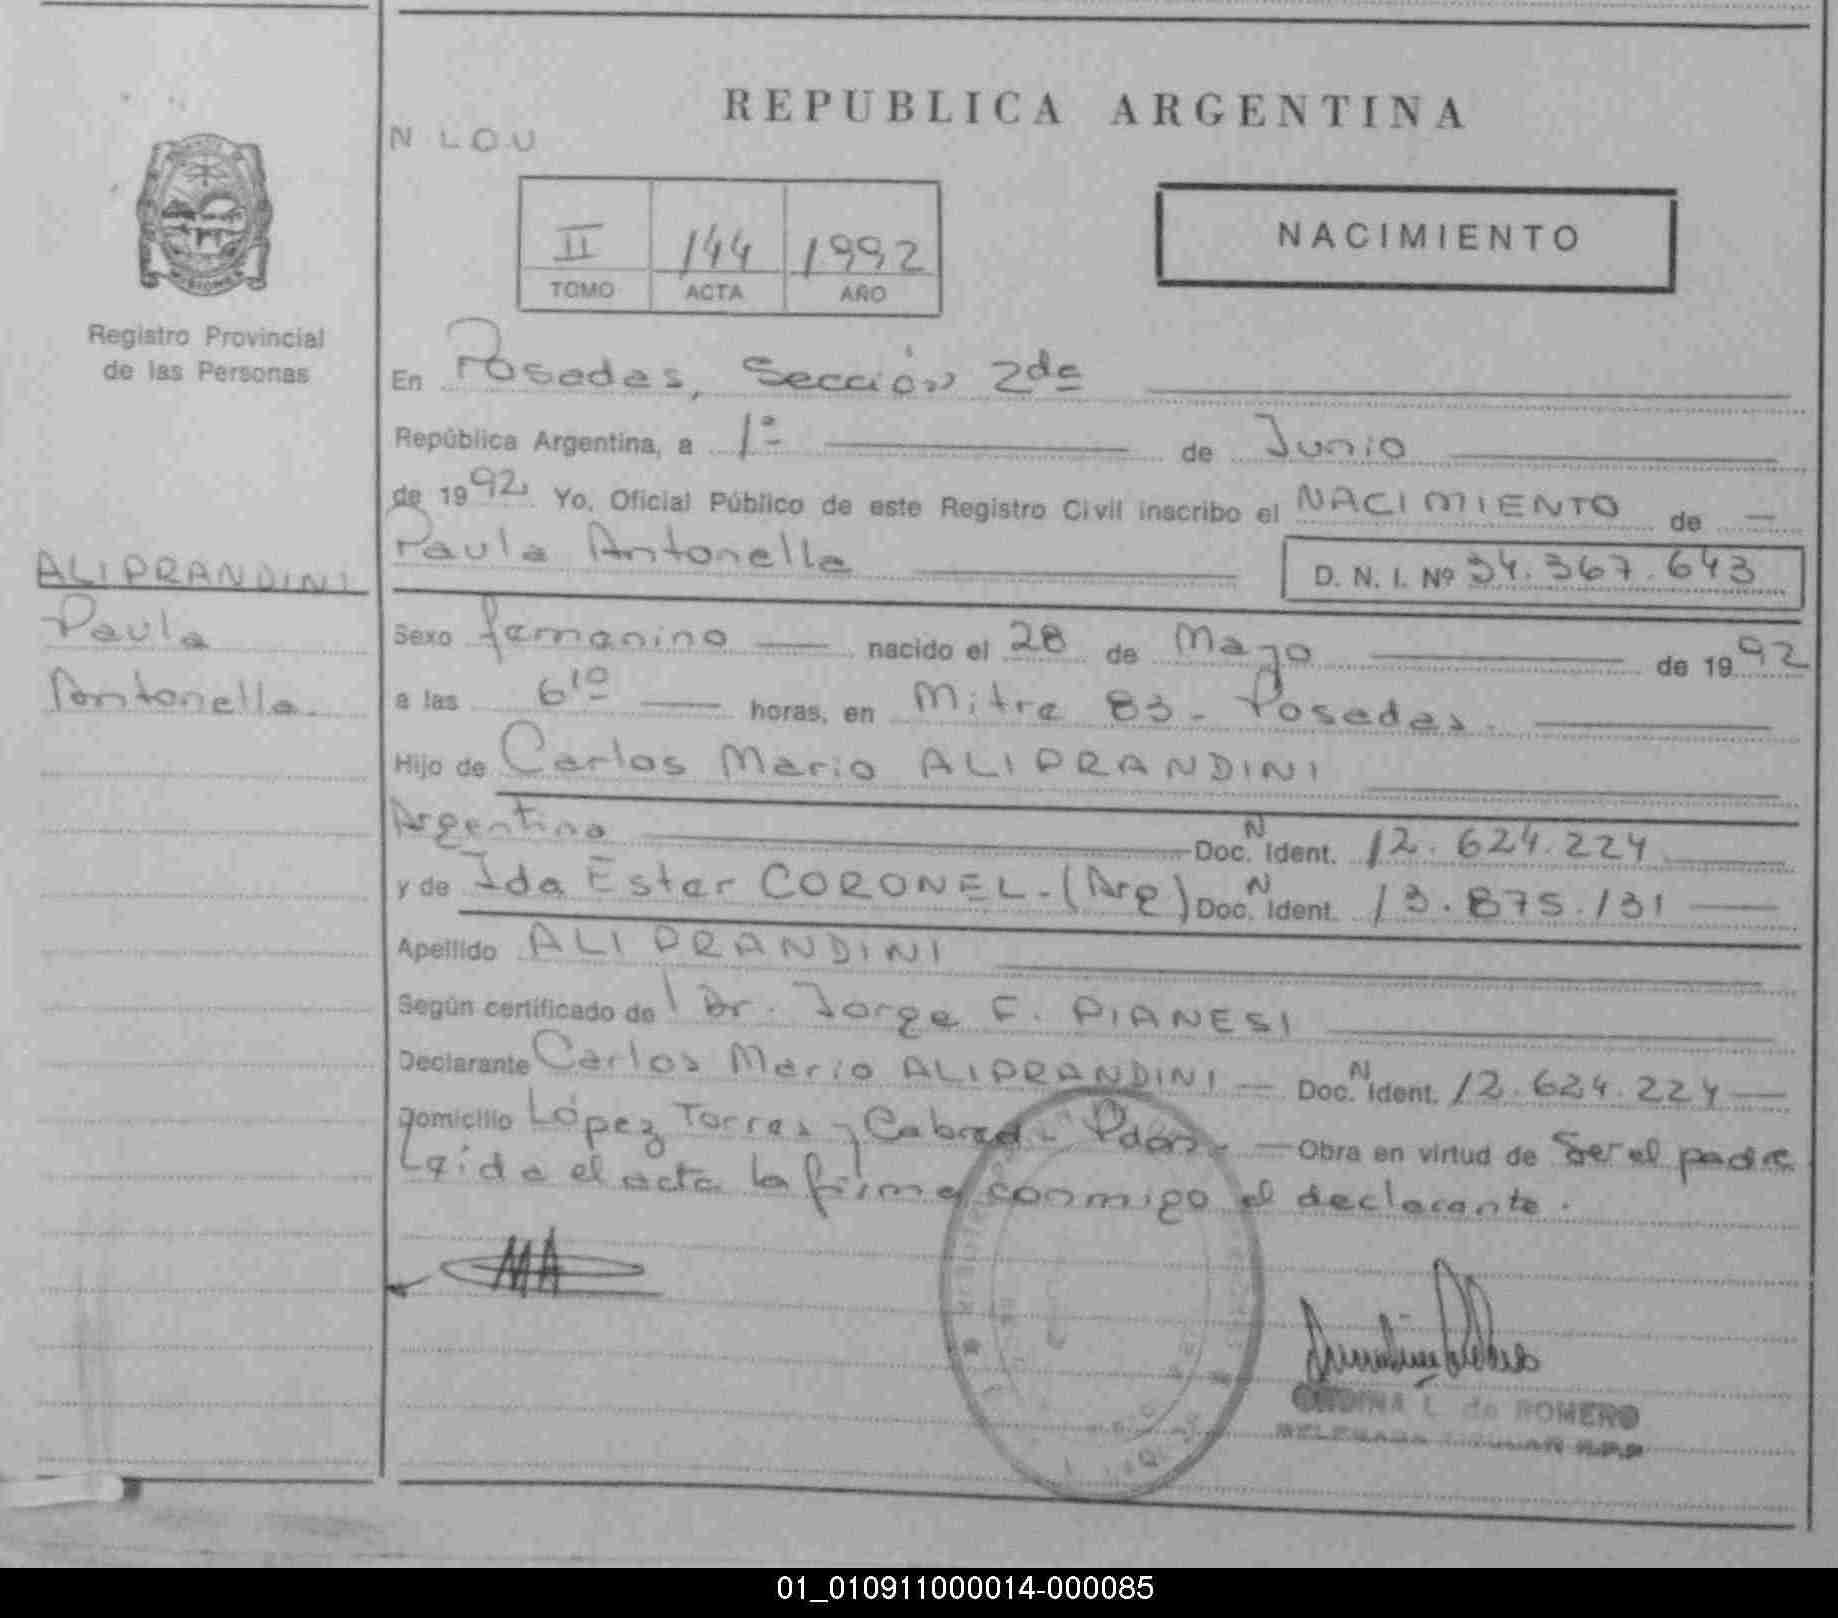 REPUBLICA ARGENTINA
N L.O.U
II 144 1992
TOMO ACTA AÑO
NACIMIENTO
Registro Provincial
de las Personas
ALIPRANDINI
Paula
Antonella.
En Posadas, Sección 2da
República Argentina, a 1º de Junio
de 1992 Yo, Oficial Público de este Registro Civil inscribo el NACIMIENTO de
Paula Antonella D. N. I. Nº 34.367.643
Sexo femenino nacido el 28 de Mayo de 1992
a las 6 10 horas, en Mitre 83 - Posadas.
Hijo de Carlos Mario ALIPRANDINI
Argentino Doc. N Ident. 12.624.224
y de Ida Ester CORONEL - (Arg) Doc. N Ident. 13.875.131
Apellido ALIPRANDINI
Según certificado de Dr. Jorge F. PIANESI
Declarante Carlos Mario ALIPRANDINI Doc. N Ident. 12.624.224
Domicilio López Torres y Cabred - Pdas. Obra en virtud de Ser el padre
Leída el acta la firma conmigo el declarante.
MA
ONDINA L. de ROMERO
DELEGADA TITULAR R.P.P
01_010911000014-000085